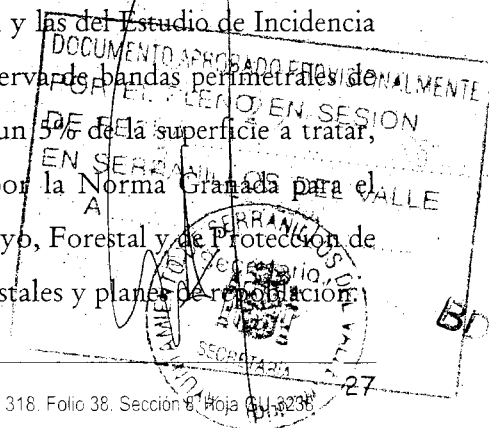 y las del Estudio de Incidencia
reserva de bandas perimetrales de
un 5% de la superficie a tratar,
por la Norma Granada para el
Forestal y de Protección de
y planes de repoblación.
DOCUMENTO APROBADO PROVISIONALMENTE
POR EL PLENO EN SESION
DE
EN SERRANILLOS DEL VALLE
A
AYUNTAMIENTO DE SERRANILLOS DEL VALLE
SECRETARIA
27
318. Folio 38. Sección 8. Hoja GU-3238